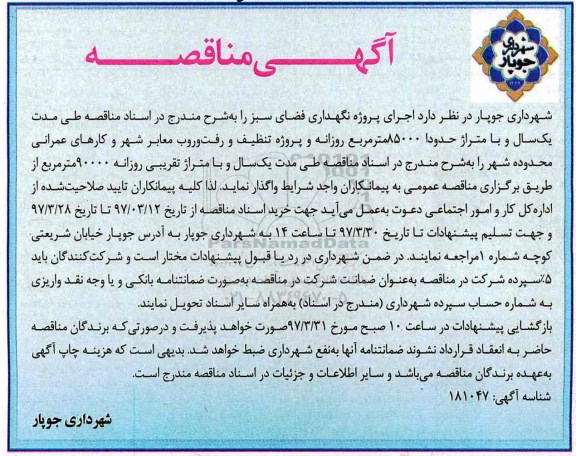 آگهی مناقصه
شهرداری جوپار
شهرداری جوپار در نظر دارد اجرای پروژه نگهداری فضای سبز را به‌شرح مندرج در اسناد مناقصه طی مدت
یک‌سال و با متراژ حدودا ۸۵۰۰۰مترمربع روزانه و پروژه تنظیف و رفت‌وروب معابر شهر و کارهای عمرانی
محدوده شهر را به‌شرح مندرج در اسناد مناقصه طی مدت یک‌سال و با متراژ تقریبی روزانه ۹۰۰۰۰مترمربع از
طریق برگزاری مناقصه عمومی به پیمانکاران واجد شرایط واگذار نماید. لذا کلیه پیمانکاران تایید صلاحیت‌شده از
اداره‌کل کار و امور اجتماعی دعوت به‌عمل می‌آید جهت خرید اسناد مناقصه از تاریخ ۹۷/۰۳/۱۲ تا تاریخ ۹۷/۳/۲۸
و جهت تسلیم پیشنهادات تا تاریخ ۹۷/۳/۳۰ تا ساعت ۱۴ به شهرداری جوپار به آدرس جوپار خیابان شریعتی
کوچه شماره ۱مراجعه نمایند. در ضمن شهرداری در رد یا قبول پیشنهادات مختار است و شرکت‌کنندگان باید
۵٪سپرده شرکت در مناقصه به‌عنوان ضمانت شرکت در مناقصه به‌صورت ضمانتنامه بانکی و یا وجه نقد واریزی
به شماره حساب سپرده شهرداری (مندرج در اسناد) به‌همراه سایر اسناد تحویل نمایند.
بازگشایی پیشنهادات در ساعت ۱۰ صبح مورخ ۹۷/۳/۳۱صورت خواهد پذیرفت و درصورتی‌که برندگان مناقصه
حاضر به انعقاد قرارداد نشوند ضمانتنامه آنها به‌نفع شهرداری ضبط خواهد شد. بدیهی است که هزینه چاپ آگهی
به‌عهده برندگان مناقصه می‌باشد و سایر اطلاعات و جزئیات در اسناد مناقصه مندرج است.
شناسه آگهی: ۱۸۱۰۴۷
شهرداری جوپار
ParsNamadData